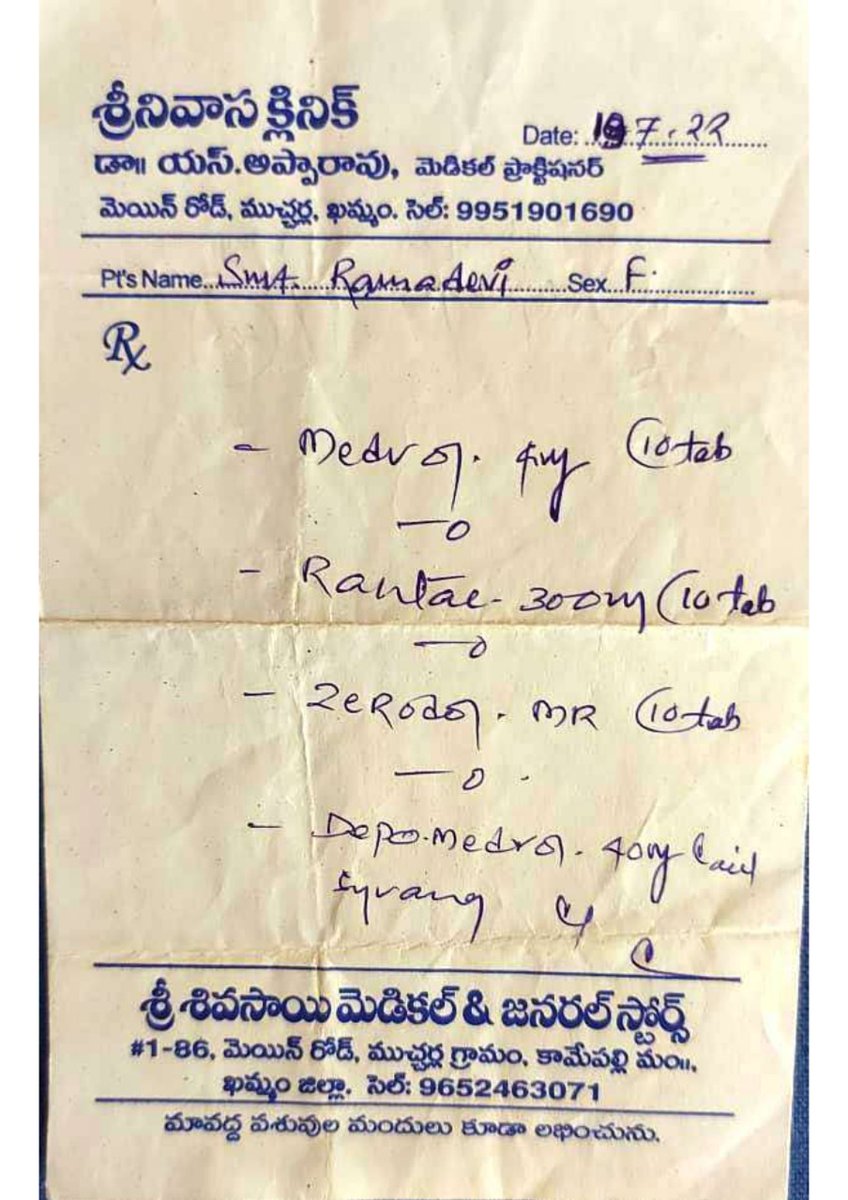 శ్రీనివాస క్లినిక్
Date: 19.7.22
డా॥ యస్.అప్పారావు, మెడికల్ ప్రాక్టిషనర్
మెయిన్ రోడ్, ముచ్చర్ల, ఖమ్మం. సెల్: 9951901690
Pt's Name Smt. Ramadevi Sex F.
Rx
- Medrol. 4mg 10 tab
- Rantac - 300mg 10 tab
- Zerodol. MR 10 tab
- Depo.medrol. 40mg
Syrang
శ్రీ శివసాయి మెడికల్ & జనరల్ స్టోర్స్
#1-86, మెయిన్ రోడ్, ముచ్చర్ల గ్రామం, కామేపల్లి మం॥,
ఖమ్మం జిల్లా. సెల్: 9652463071
మావద్ద పశువుల మందులు కూడా లభించును.